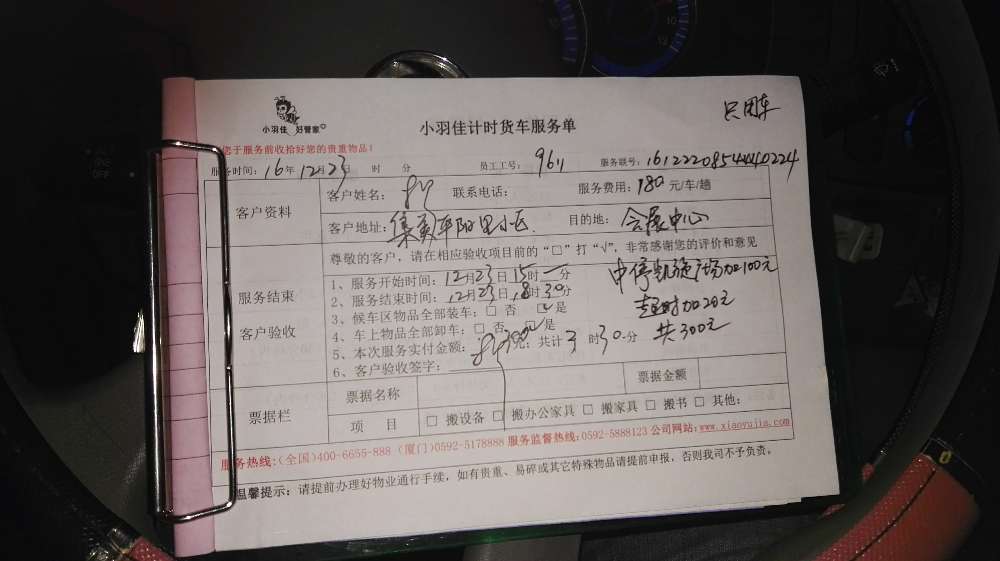 只用车
小羽佳 好管家
小羽佳计时货车服务单
您于服务前收拾好您的贵重物品！
服务时间：16年12月23日 时 分 员工工号：9611 服务联号：
客户资料
客户姓名： 联系电话： 服务费用：180元/车/趟
客户地址：集美 阳里小区 目的地：会展中心
尊敬的客户，请在相应验收项目前的“□”打“√”，非常感谢您的评价和意见
服务结束
客户验收
1、服务开始时间：12月23日15时 分
2、服务结束时间：12月23日18时30分
3、候车区物品全部装车：□ 否 □ 是
4、车上物品全部卸车：□ 否 □ 是
5、本次服务实付金额：300元；共计3时30分
6、客户验收签字：
中停凯旋广场加100元
超时加20元
共300元
票据栏
票据名称 票据金额
项 目 □ 搬设备 □ 搬办公家具 □ 搬家具 □ 搬书 □ 其他：
服务热线：(全国)400-6655-888 (厦门)0592-5178888 服务监督热线：0592-5888123 公司网站：www.xiaoyujia.com
温馨提示：请提前办理好物业通行手续，如有贵重、易碎或其它特殊物品请提前申报，否则我司不予负责。
OFF